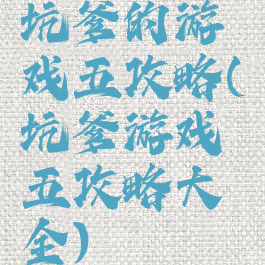 坑爹的游
戏五攻略(
坑爹游戏
五攻略大
全)